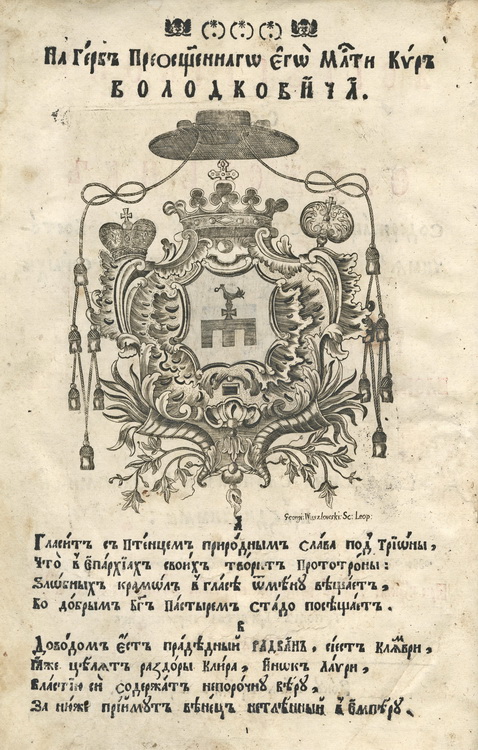 На Гербъ Преѡсщ҃еннагѡ Єгѡ̀ Мл҃ти Кѵръ
ВОЛОДКОВИЧА.
Georgi: Waszlowcki: Sc: Leop:
А
Гласитъ съ Птенцемъ природнымъ слава под̾ Трїѡны,
Что в̾ Єпархїахъ своихъ творитъ Прототроны:
Ѕлѡбныхъ крамѡлъ в̾ гласѣ ѿмѣну вѣщаетъ,
Бо добрымъ Бг҃ъ Пастыремъ стадо посѣщаетъ.
В
Доводомъ єстъ прадѣдный РАДВАНЪ,
Иже цѣлятъ раздоры Клира, Инѡкъ Лаѵри,
Властїю сїи содержатъ непорочну вѣру,
За нюже прїимутъ вѣнецъ нетлѣнный в̾ Емпѣру.